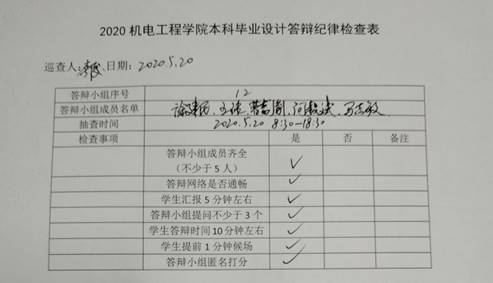 2020 机电工程学院本科毕业设计答辩纪律检查表
巡查人: 日期: 2020.5.20
答辩小组序号 12
答辩小组成员名单
抽查时间 2020.5.20 8:30-18:30
检查事项 是 否 备注
答辩小组成员齐全
（不少于 5 人） ✓
答辩网络是否通畅 ✓
学生汇报 5 分钟左右 ✓
答辩小组提问不少于 3 个 ✓
学生答辩时间 10 分钟左右 ✓
学生提前 1 分钟候场 ✓
答辩小组匿名打分 ✓